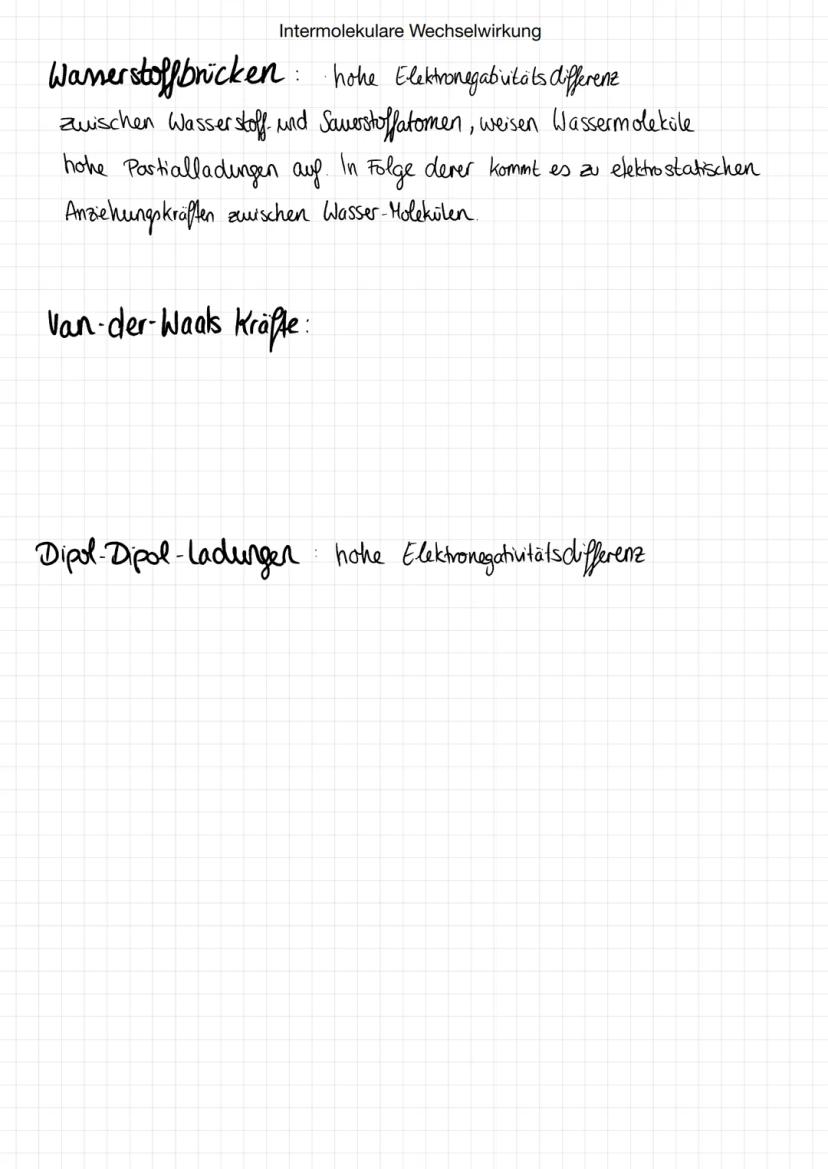 Intermolekulare Wechselwirkung
Wasserstoffbrücken : hohe Elektronegativitätsdifferenz
zwischen Wasserstoff- und Sauerstoffatomen, weisen Wassermoleküle
hohe Partialladungen auf. In Folge derer kommt es zu elektrostatischen
Anziehungskräften zwischen Wasser-Molekülen.
Van-der-Waals Kräfte :
Dipol-Dipol-Ladungen : hohe Elektronegativitätsdifferenz